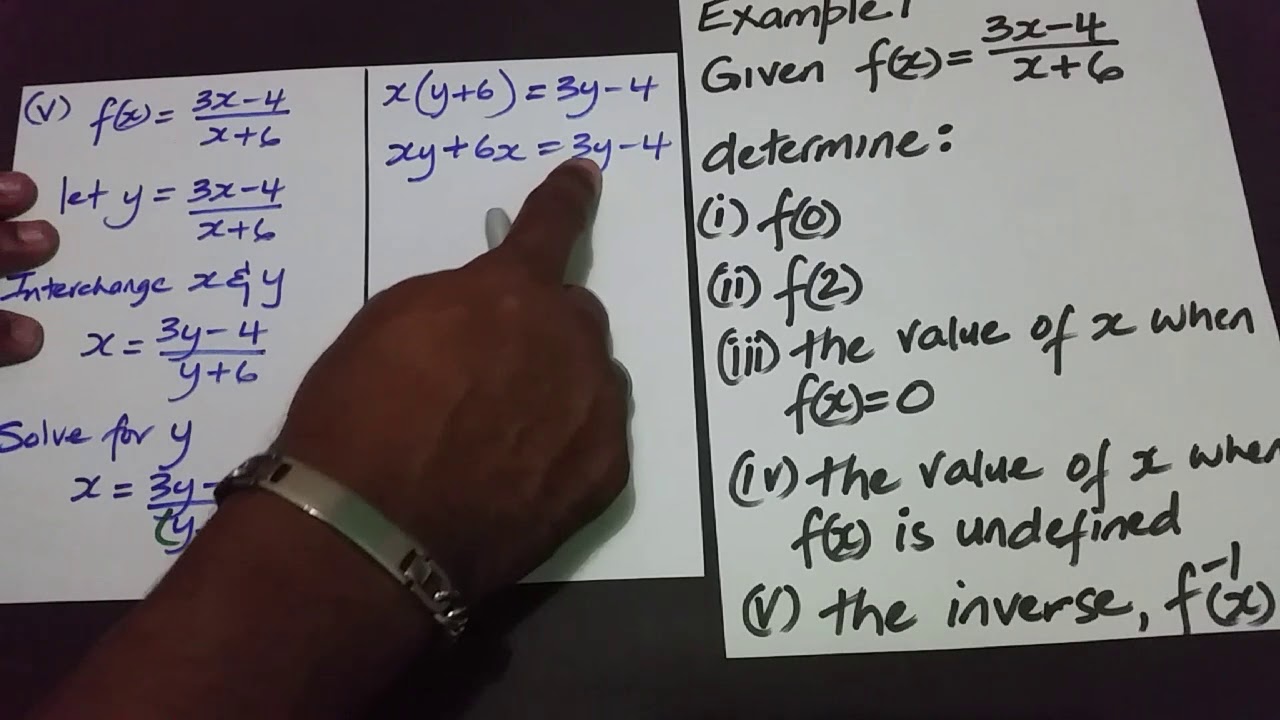 (v) f(x) = 3x-4/x+6
let y = 3x-4/x+6
Interchange x & y
x = 3y-4/y+6
Solve for y
x = 3y-
(y
x(y+6) = 3y-4
xy+6x = 3y-4
Example 1
Given f(x) = 3x-4/x+6
determine:
(i) f(0)
(ii) f(2)
(iii) the value of x when
f(x)=0
(iv) the value of x when
f(x) is undefined
(v) the inverse, f⁻¹(x)